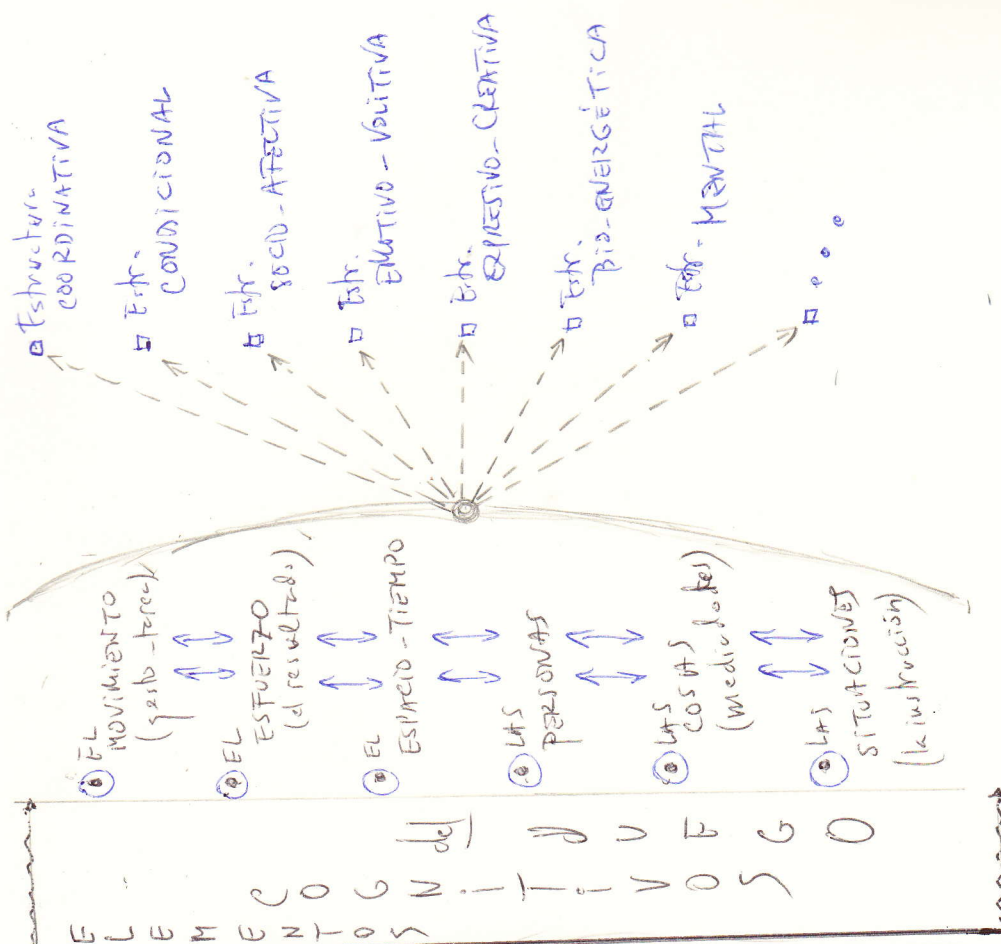 ELEMENTOS
COGNITIVOS
del JUEGO
EL
MOVIMIENTO
(gesto-tarea)
EL
ESFUERZO
(el resultado)
EL
ESPACIO-TIEMPO
LAS
PERSONAS
LAS
COSAS
(mediadores)
LAS
SITUACIONES
(la instrucción)
Estructura
COORDINATIVA
Estr.
CONDICIONAL
Estr.
SOCIO-AFECTIVA
Estr.
EMOTIVO-VOLITIVA
Estr.
EXPRESIVO-CREATIVA
Estr.
BIO-ENERGÉTICA
Estr. MENTAL
...